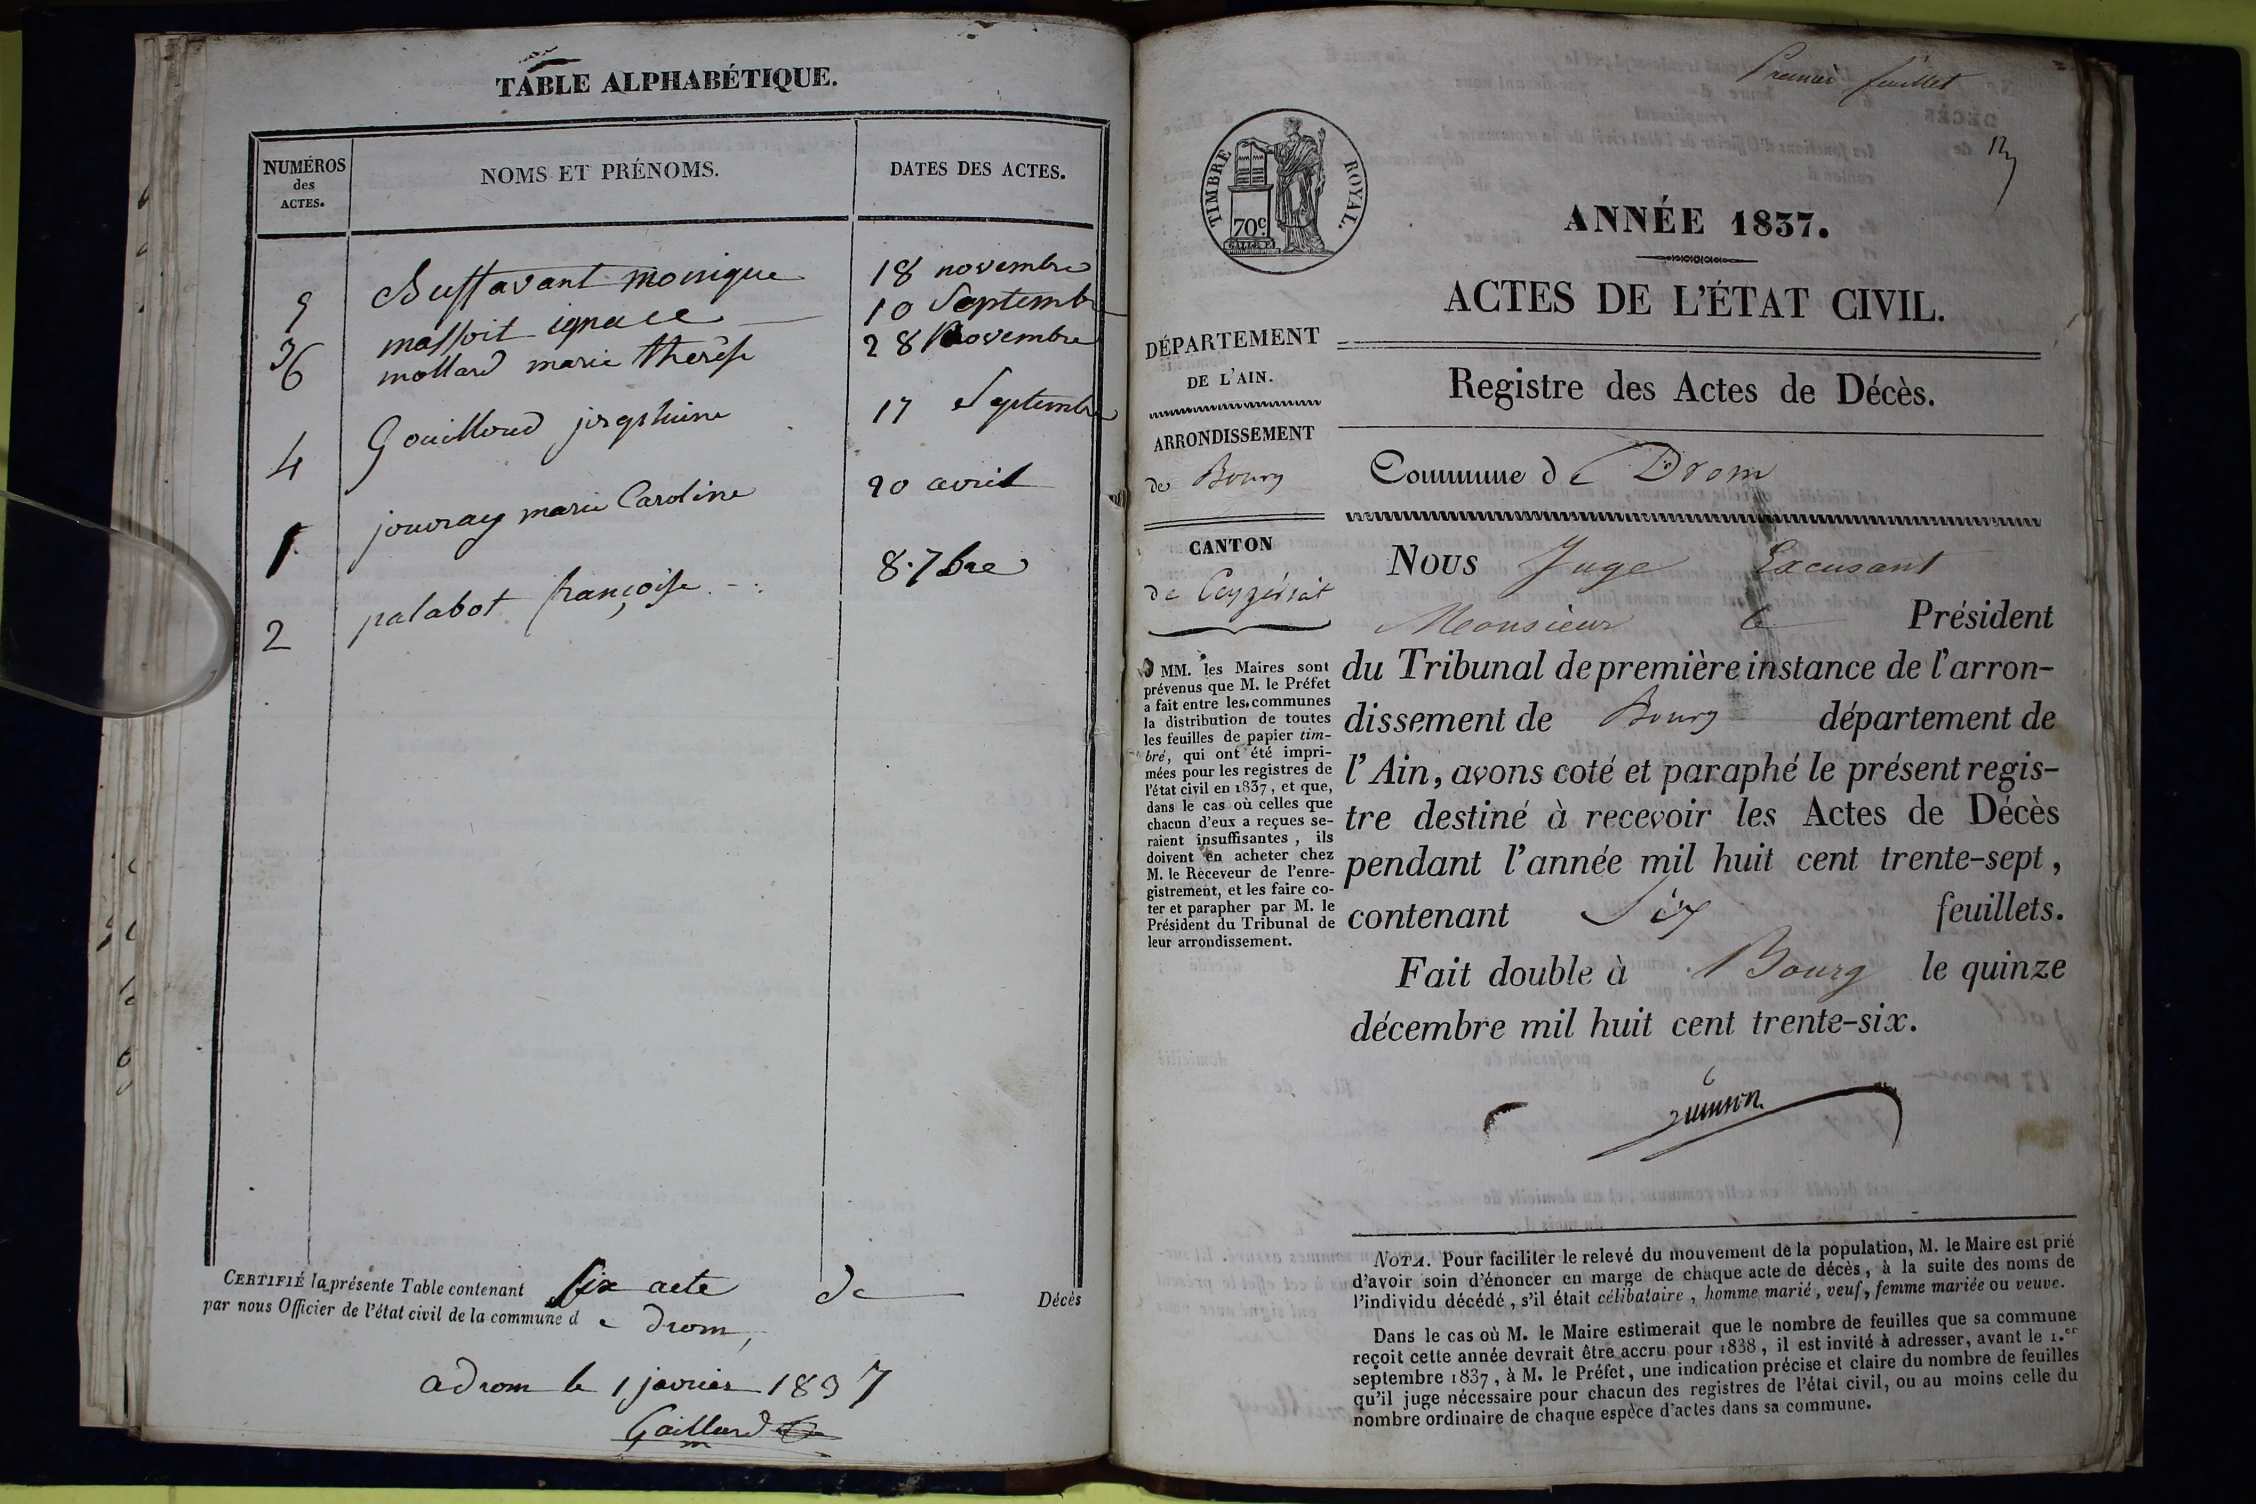 TABLE ALPHABÉTIQUE.
NUMÉROS des ACTES.
NOMS ET PRÉNOMS.
DATES DES ACTES.
5 Buffavant monique 18 novembre
3 massoit ignace 10 Septembre
6 mollard marie thérèse 28 Novembre
4 Gouilloud josephine 17 Septembre
1 jouvray marie Caroline 20 avril
2 palabot françoise 8. 7bre
CERTIFIÉ la présente Table contenant six acte de Décès
par nous Officier de l'état civil de la commune de drom,
a drom le 1 javier 1837
Gaillard
Premier feuillet
TIMBRE ROYAL.
70c.
ANNÉE 1837.
ACTES DE L'ÉTAT CIVIL.
Registre des Actes de Décès.
DÉPARTEMENT
DE L'AIN.
ARRONDISSEMENT
de Bourg
CANTON
de Ceyzériat
MM. les Maires sont
prévenus que M. le Préfet
a fait entre les communes
la distribution de toutes
les feuilles de papier tim-
bré, qui ont été impri-
mées pour les registres de
l'état civil en 1837, et que,
dans le cas où celles que
chacun d'eux a reçues se-
raient insuffisantes, ils
doivent en acheter chez
M. le Receveur de l'enre-
gistrement, et les faire co-
ter et parapher par M. le
Président du Tribunal de
leur arrondissement.
Commune de Drom
Nous Juge Excusant
Monsieur le Président
du Tribunal de première instance de l'arron-
dissement de Bourg département de
l'Ain, avons coté et paraphé le présent regis-
tre destiné à recevoir les Actes de Décès
pendant l'année mil huit cent trente-sept,
contenant Six feuillets.
Fait double à Bourg le quinze
décembre mil huit cent trente-six.
NOTA. Pour faciliter le relevé du mouvement de la population, M. le Maire est prié
d'avoir soin d'énoncer en marge de chaque acte de décès, à la suite des noms de
l'individu décédé, s'il était célibataire, homme marié, veuf, femme mariée ou veuve.
Dans le cas où M. le Maire estimerait que le nombre de feuilles que sa commune
reçoit cette année devrait être accru pour 1838, il est invité à adresser, avant le 1.er
septembre 1837, à M. le Préfet, une indication précise et claire du nombre de feuilles
qu'il juge nécessaire pour chacun des registres de l'état civil, ou au moins celle du
nombre ordinaire de chaque espèce d'actes dans sa commune.